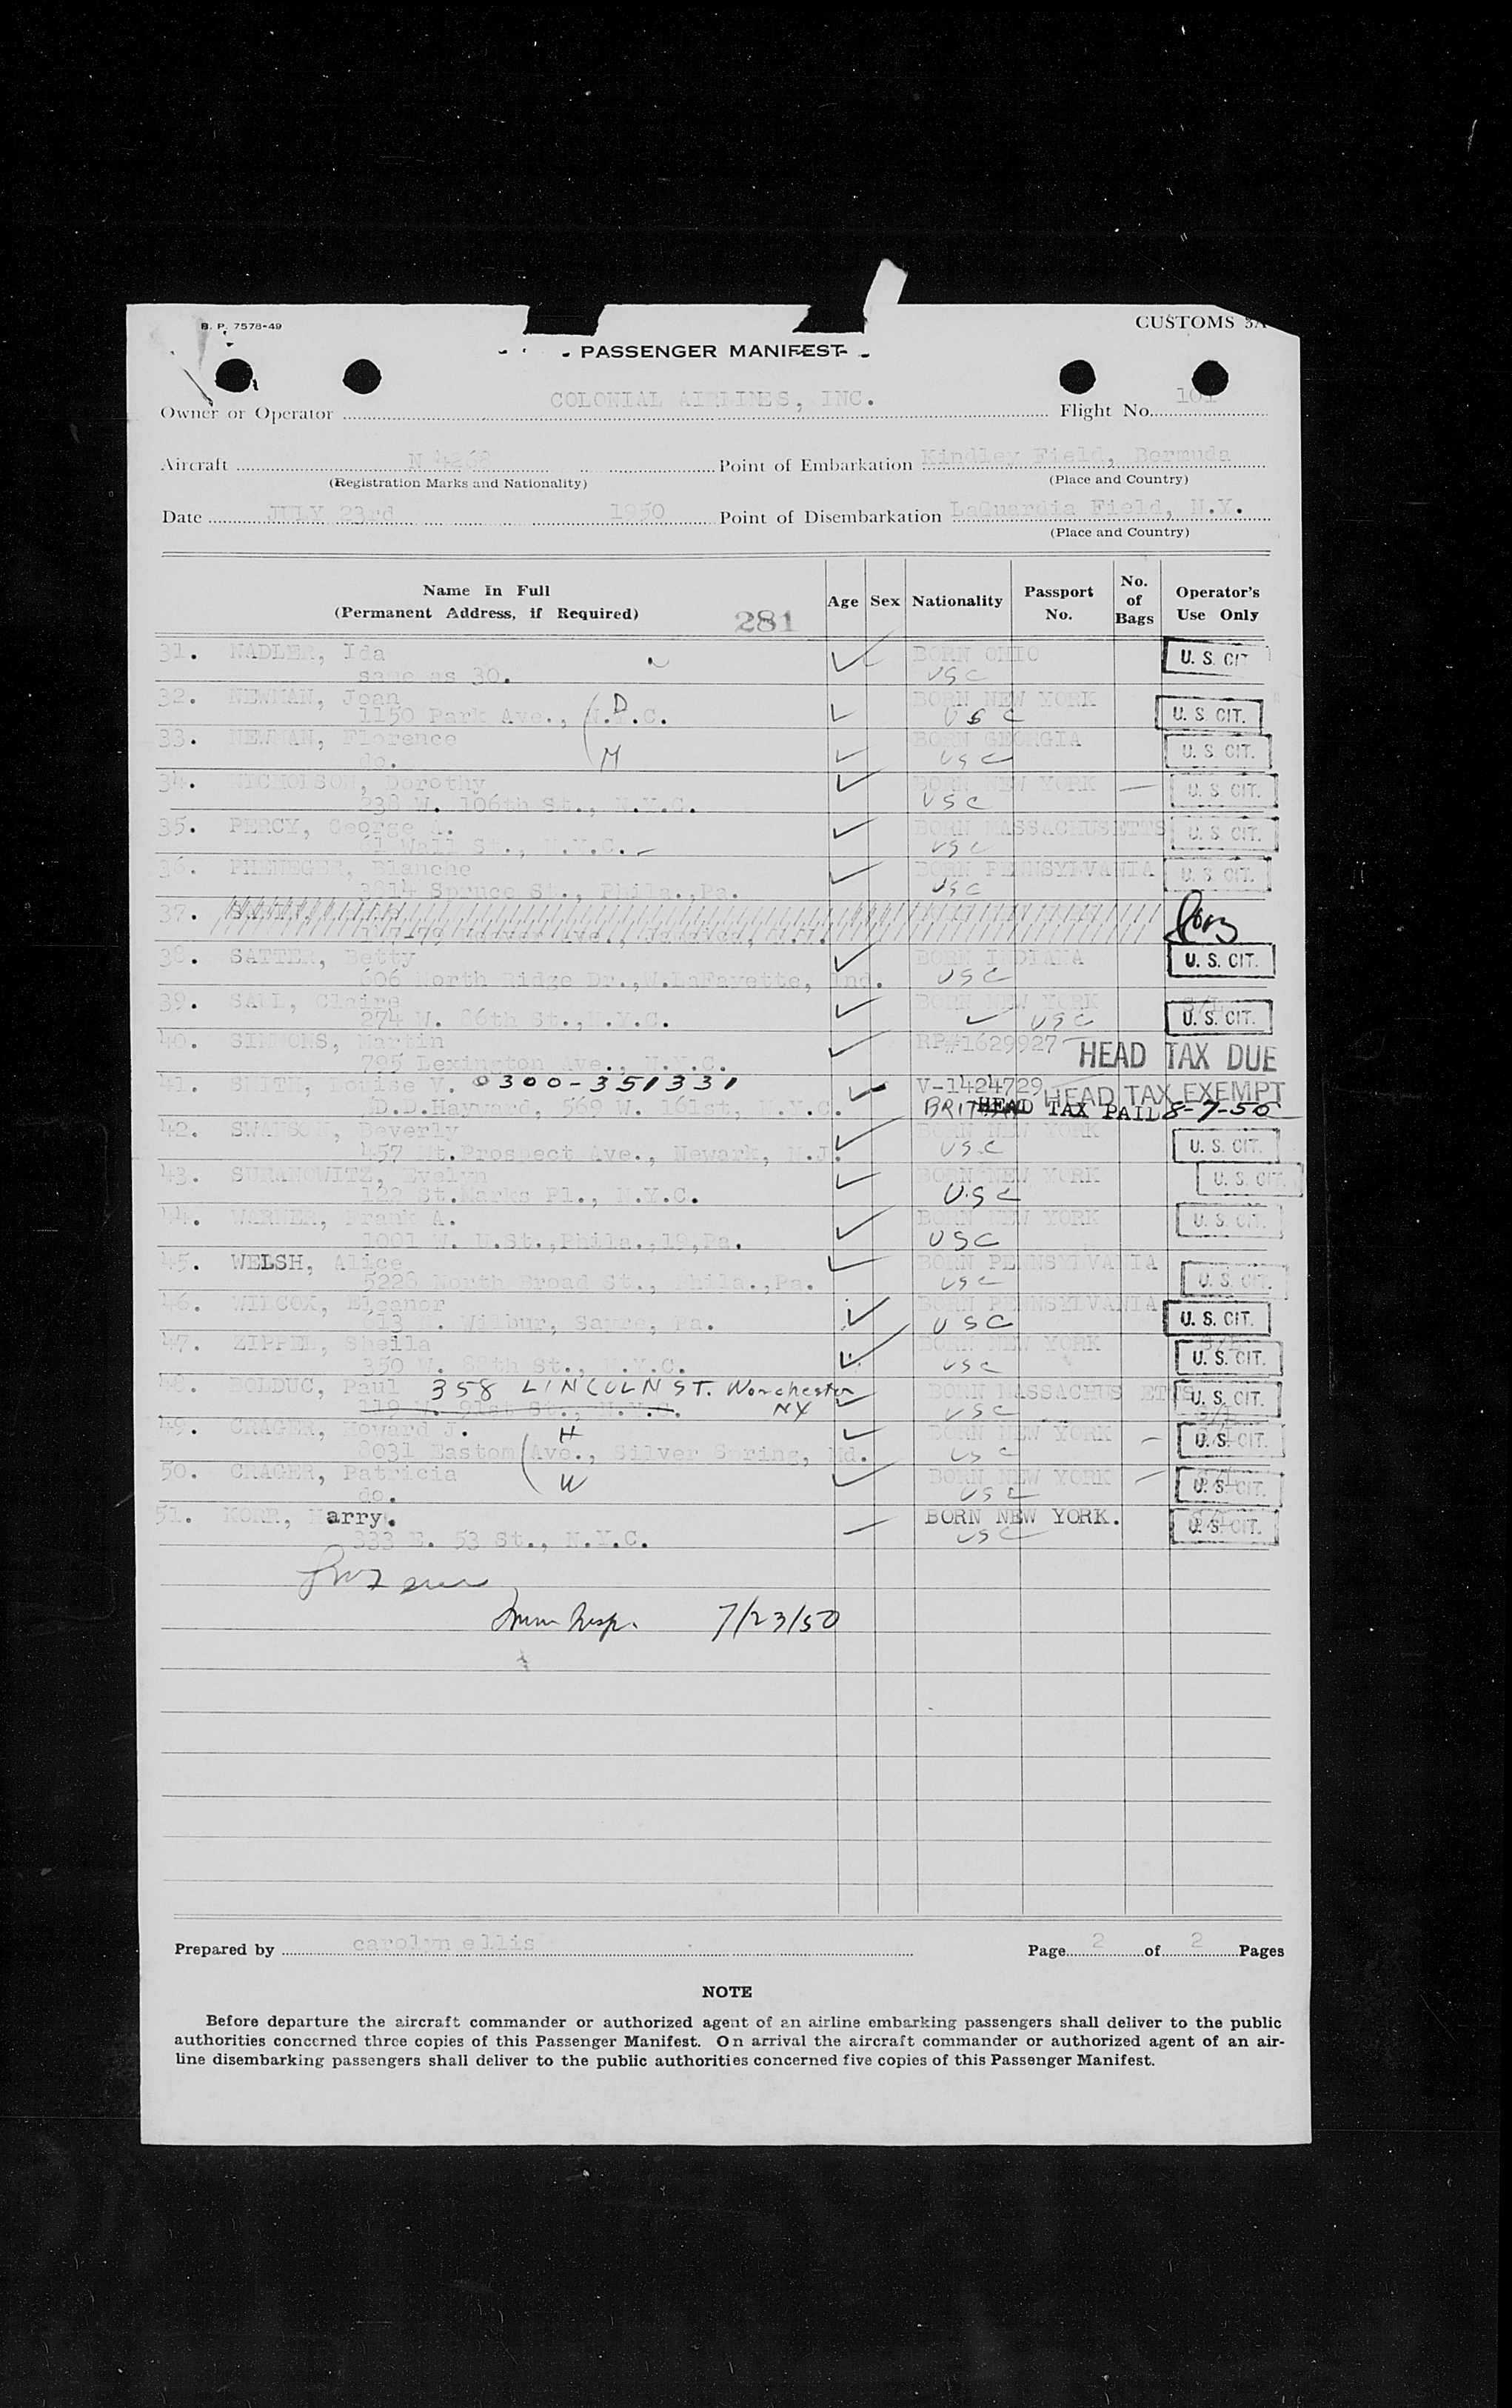 B. P. 7578-49
CUSTOMS 5A
PASSENGER MANIFEST
Owner or Operator COLONIAL AIRLINES, INC. Flight No. 101
Aircraft Point of Embarkation Kindley Field, Bermuda
(Registration Marks and Nationality) (Place and Country)
Date JULY 23rd 1950 Point of Disembarkation LaGuardia Field, N.Y.
(Place and Country)
Name In Full (Permanent Address, if Required) Age Sex Nationality Passport No. No. of Bags Operator's Use Only
281
31. NADLER, Ida BORN OHIO U. S. CIT
same as 30. USC
32. NEWMAN, Joan D BORN NEW YORK U. S. CIT.
1150 Park Ave., N.Y.C. USC
33. NEWMAN, Florence BORN GEORGIA U. S. CIT.
do. M USC
34. NICHOLSON, Dorothy BORN NEW YORK U. S. CIT.
238 W. 106th St., N.Y.C. USC
35. PERCY, George A. BORN MASSACHUSETTS U. S. CIT.
61 Wall St., N.Y.C. USC
36. PHENEGER, Blanche BORN PENNSYLVANIA U. S. CIT.
3914 Spruce St., Phila., Pa. USC
37.
38. SATTER, Betty BORN INDIANA U. S. CIT.
606 North Ridge Dr., W.LaFayette, Ind. USC
39. SALL, Claire BORN NEW YORK U. S. CIT.
274 W. 86th St., N.Y.C. USC
40. SIMMONS, Martin RP#1629927 HEAD TAX DUE
795 Lexington Ave., N.Y.C.
41. SMITH, Louise V. 0300-351331 V-1424729 HEAD TAX EXEMPT
D.D.Hayward, 569 W. 161st, N.Y.C. HEAD TAX PAID 8-7-50
42. SWANSON, Beverly BORN NEW YORK U. S. CIT.
457 Mt.Prospect Ave., Newark, N.J. USC
43. SURANOWITZ, Evelyn BORN NEW YORK U. S. CIT.
122 St.Marks Pl., N.Y.C. USC
44. WERNER, Frank A. BORN NEW YORK U. S. CIT.
1001 W. U.St., Phila., 19, Pa. USC
45. WELSH, Alice BORN PENNSYLVANIA U. S. CIT.
5228 North Broad St., Phila., Pa. USC
46. WILCOX, Eleanor BORN PENNSYLVANIA U. S. CIT.
613 N. Wilbur, Sayre, Pa. USC
47. ZIPPER, Sheila BORN NEW YORK U. S. CIT.
350 W. 88th St., N.Y.C. USC
48. BOLDUC, Paul 358 LINCOLN ST. Worchester BORN MASSACHUSETTS U. S. CIT.
119 W. 91st St., N.Y.C. NY USC
49. CRAGER, Howard J. H BORN NEW YORK U. S. CIT.
8031 Eastom Ave., Silver Spring, Md. USC
50. CRAGER, Patricia BORN NEW YORK U. S. CIT.
do. W USC
51. KORR, Harry. BORN NEW YORK. U. S. CIT.
333 E. 53 St., N.Y.C. USC
Imm Insp. 7/23/50
Prepared by carolyn ellis Page 2 of 2 Pages
NOTE
Before departure the aircraft commander or authorized agent of an airline embarking passengers shall deliver to the public
authorities concerned three copies of this Passenger Manifest. On arrival the aircraft commander or authorized agent of an air-
line disembarking passengers shall deliver to the public authorities concerned five copies of this Passenger Manifest.